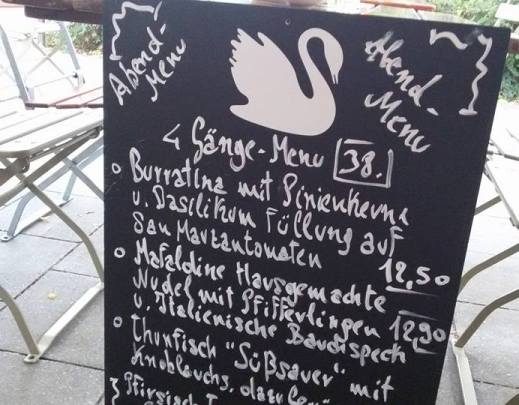 Abend-
Menu
Abend-
Menu
4 Gänge-Menu 38.
Burratina mit Pinienkerne
u. Basilikum Füllung auf
San Marzantomaten 12,50
Mafaldine Hausgemachte
Nudel mit Pfifferlingen
u. Italienische Bauchspeck 12,90
Thunfisch "Süßsauer" mit
Knoblauchs,
Pfirsich